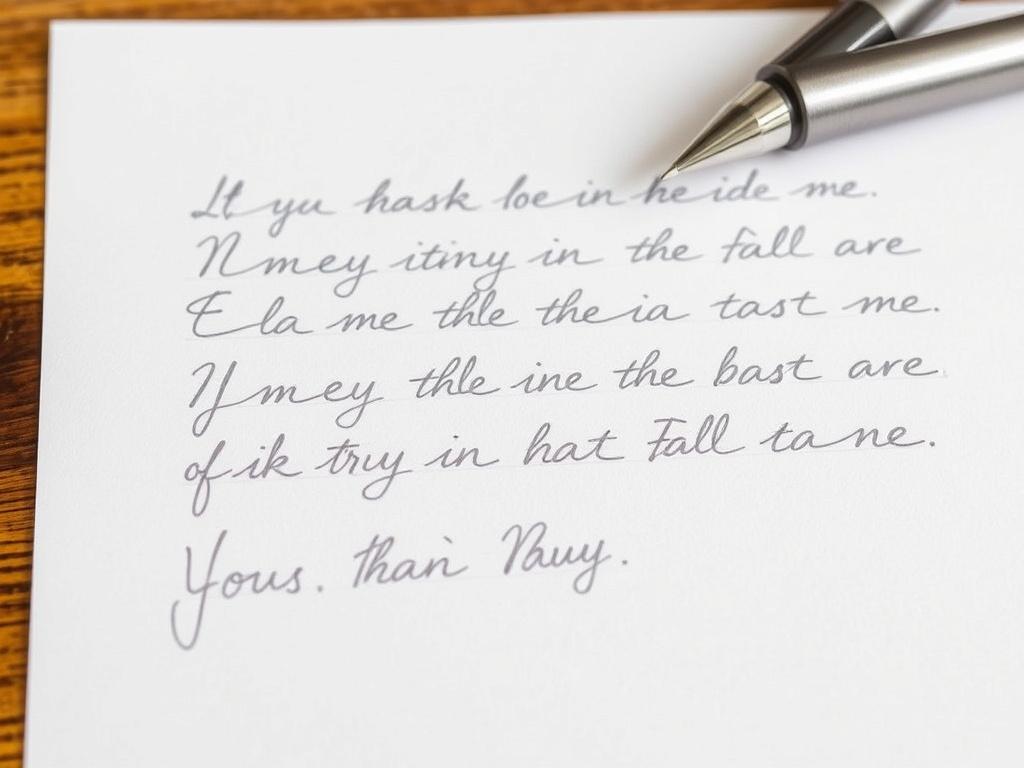 It yu hask loe in he ide me.
Nmey itiny in the fall are
Ela me thle the ia tast me.
Ymey thle ine the bast are.
of ik try in hat Fall ta ne.
Yous. than